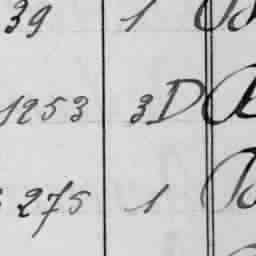 39 1
1253 3D
275 1